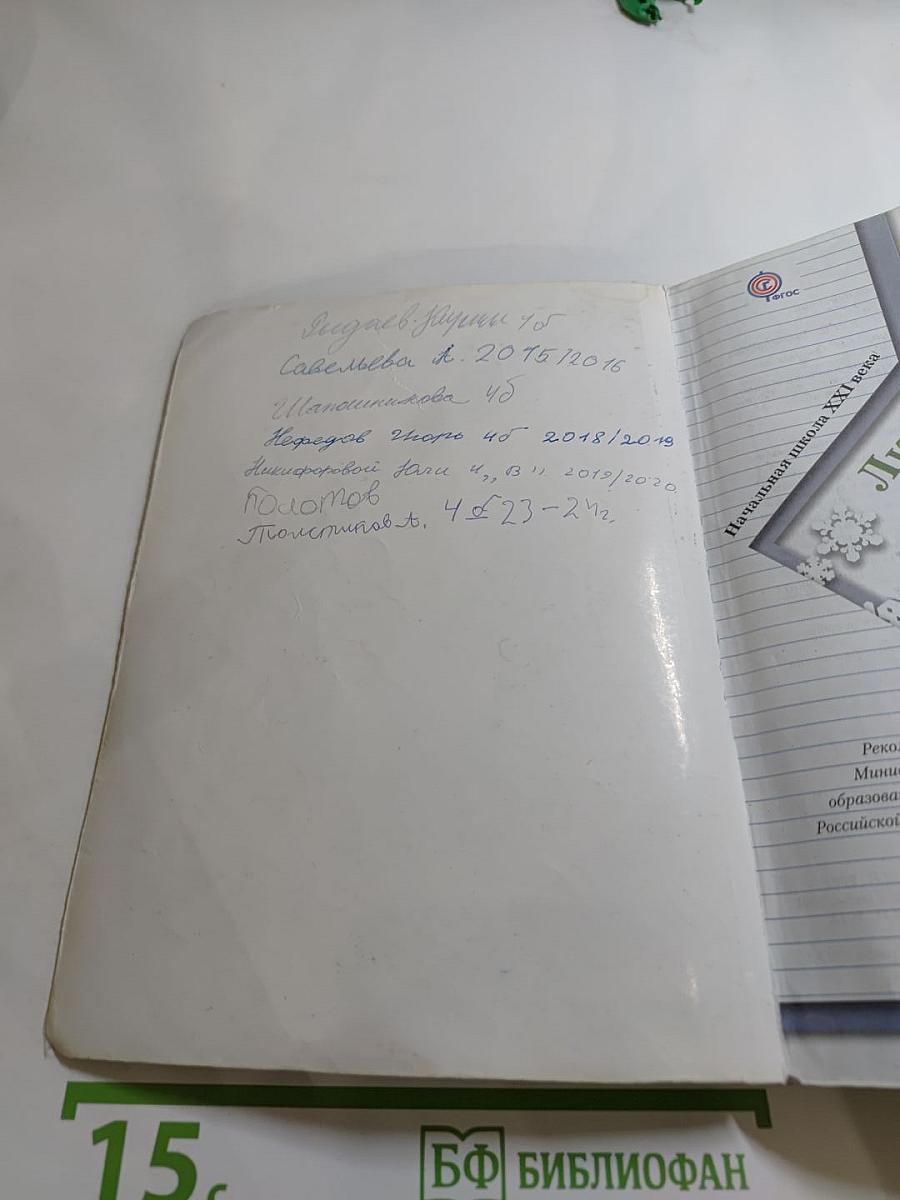 4б
Савельева А. 2015/2016
Шапошникова 4б
Нефедов Игорь 4б 2018/2019
Никифоровой Юли 4 „В" 2019/2020
Толстиков А. 4б 23-24г.
ФГОС
Начальная школа XXI века
Ли
Реко
Мини
образова
Российской
15 с
БФ БИБЛИОФАН